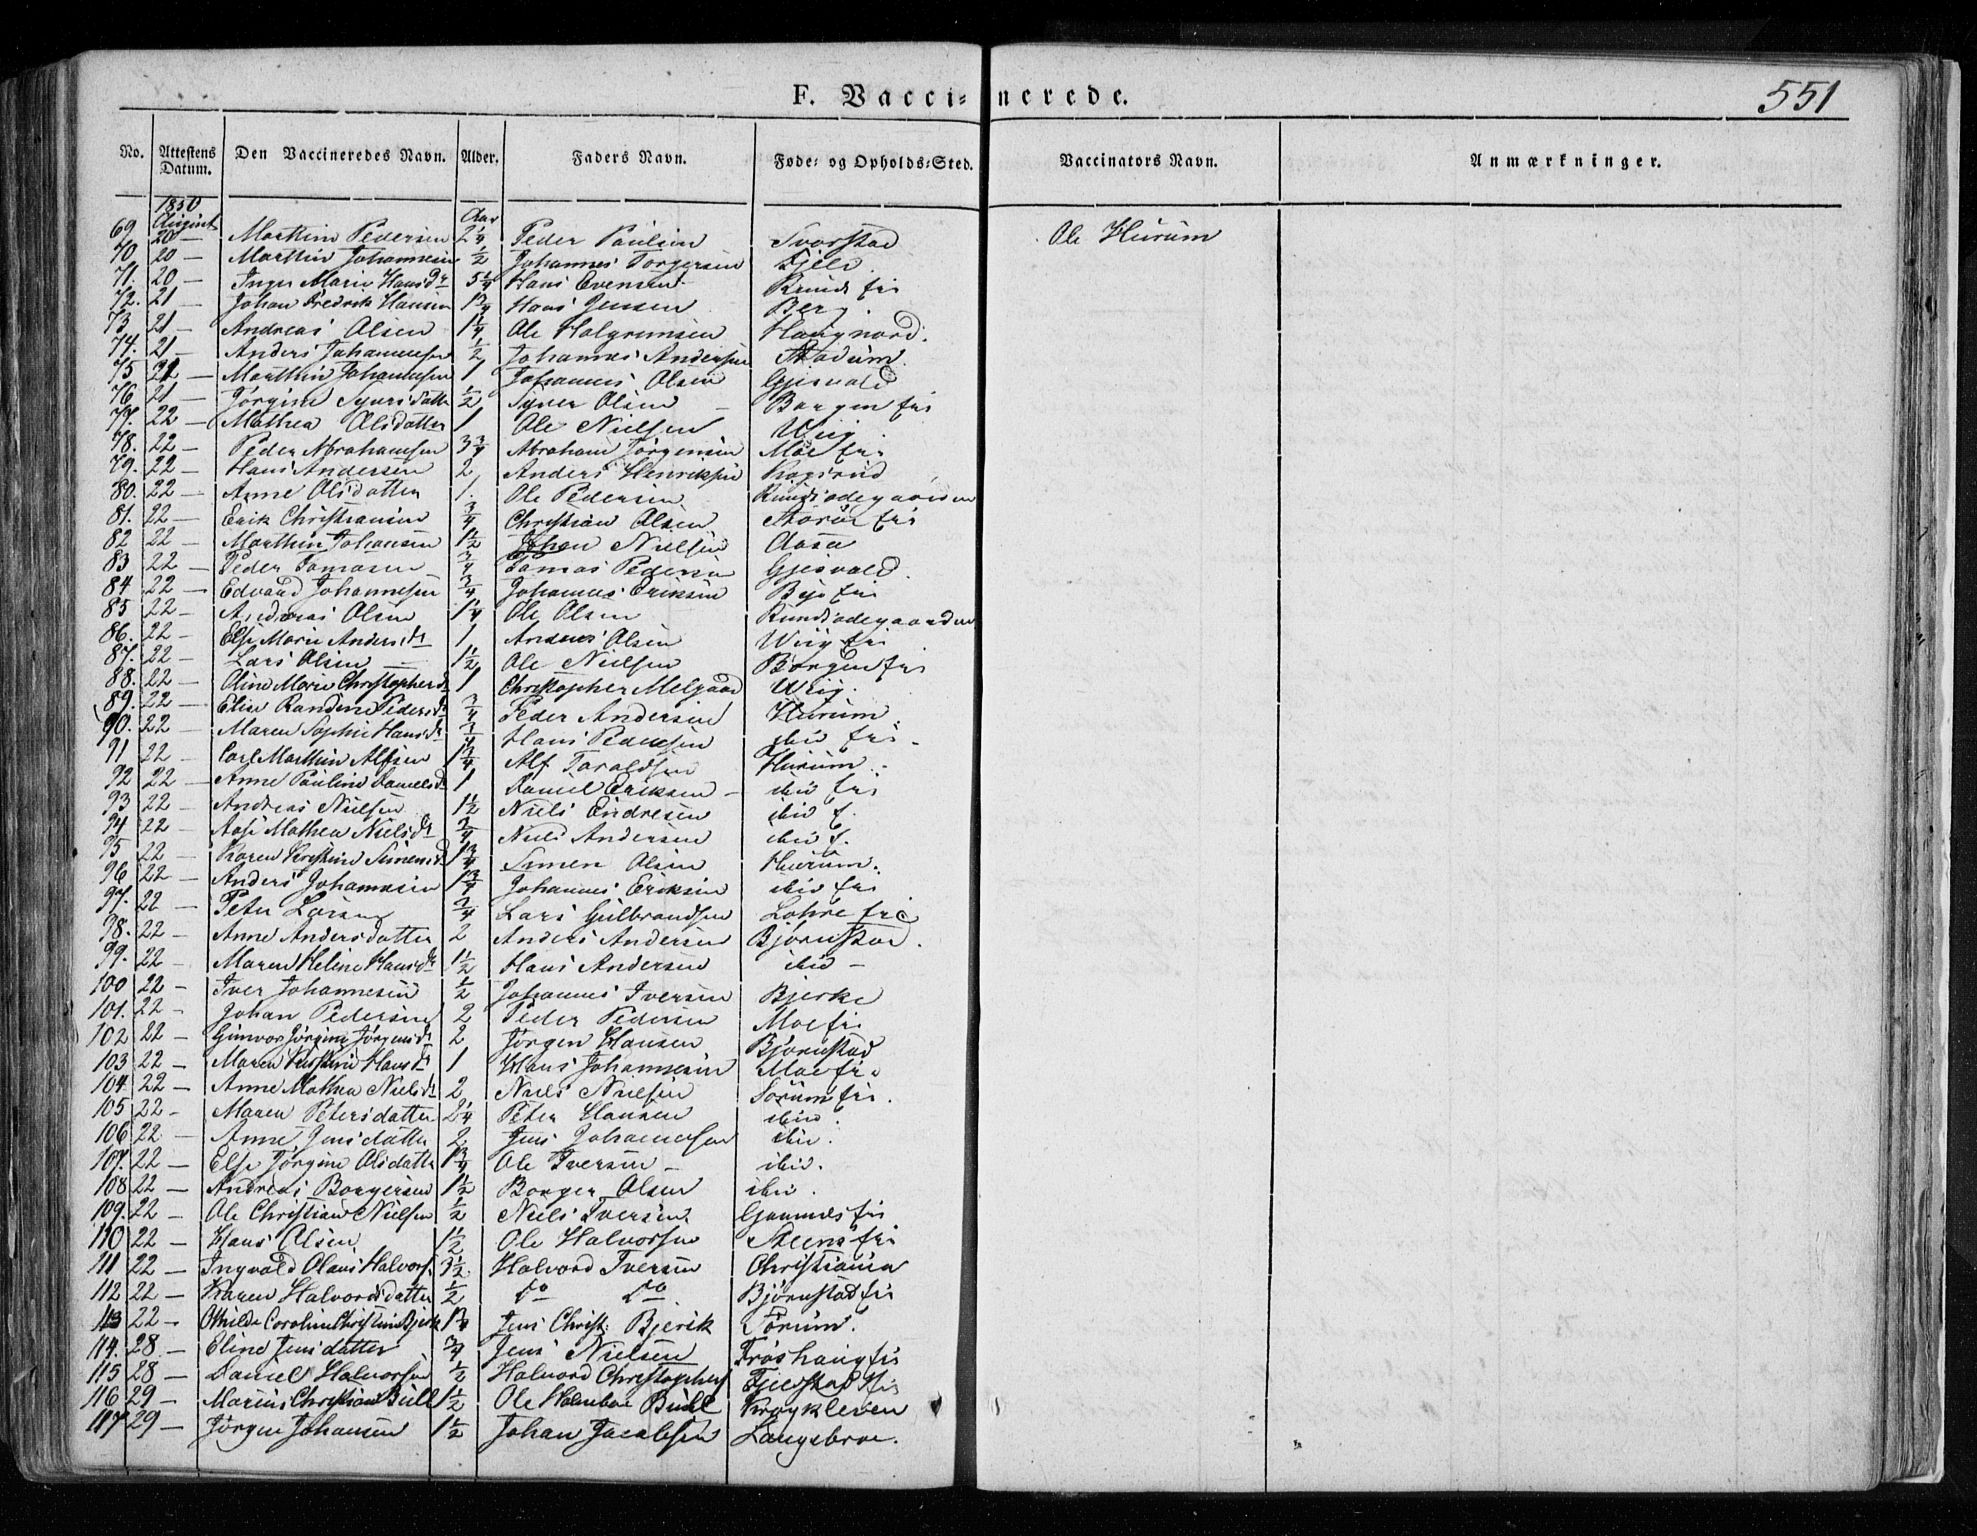 551
F. Vaccinerede.
No. Attestens Datum. Den Vaccineredes Navn. Alder. Faders Navn. Føde- og Opholds-Sted. Vaccinators Navn. Anmærkninger.
1850
August Aar
69 20 — Marthin Pedersen 2 1/4 Peder Paulsen Svarstad Ole Hurum
70 20 — Marthin Johannesen 1/2 Johannes Torgersen Fjeld
71. 20 — Inger Marie Hansdr 5 1/4 Hans Evensen Rund fri
72. 21 — Johan Fredrik Hansen 1 3/4 Hans Jensen Berg.
73 21 — Andreas Olsen 1 1/4 Ole Halgrimsen Haugnord.
74. 21 — Anders Johannesen 1/2 Johannes Andersen Stadum
75 21 — Marthin Johannesen 1 Johannes Olsen Gjesvald
76 21 — Jørgine Syversdatter 1/2 Syver Olsen — Borgen fri
77. 22 — Mathea Olsdatter 1 Ole Nielsen Wiig.
78. 22 — Peder Abrahamsen 3 3/4 Abraham Jørgensen Moe fri
79. 22 — Hans Andersen 2 Anders Henriksen Rogsrud
80. 22 — Anne Olsdatter 1. Ole Pedersen Rundsødegaarden
81. 22 — Erik Christiansen 3/4 Christian Olsen fri
82 22 — Marthin Johansen 1 1/2 Johan Nielsen Aasa
83 22 — Peder Tomasen 3/4 Tomas Pedersen Gjesvald.
84 22 — Edvard Johannesen 3/4 Johannes Eriksen fri
85 22 — Andreas Olsen 1 1/4 Ole Olsen Rundsødegaarden
86. 22 — Else Marie Andersdr 1 Anders Olsen Wiig fri
87. 22 — Lars Olsen — 1 1/2 Ole Nielsen Borgen fri
88. 22 — Oline Marie Christophersd 1 Christopher Melgaard Wiig.
89. 22 — Elise Randine Pedersd 3/4 Peder Andersen Hurum.
90. 22 — Maren Sophie Hansdr 3/4 Hans Pedersen ibid fri.
91 22 — Carl Marthin Alfsen 1 3/4 Alf Taraldsen Hurum.
92 22 — Anne Pauline Danielsd 1 Daniel Eriksen — ibid fri
93 22 — Andreas Nielsen 1 1/2 Niels Endresen ibid f.
94 22 — Aase Mathea Nielsdr 3/4 Niels Andersen ibid f.
95 22 — Karen Kristine Simensd 1 3/4 Simen Olsen Hurum.
96 22 — Anders Johannesen 1 3/4 Johannes Eriksen ibid fri
97. 22 — Peter Larsen 3/4 Lars Gulbrandsen Lohre fri
98. 22 — Anne Andersdatter 2 Anders Andersen Bjørnstad.
99. 22 — Maren Heline Hansdr 1 1/2 Hans Andersen ibid —
100 22 — Iver Johannesen 1/2 Johannes Iversen Bjerke
101. 22 — Johan Pedersen 2 Peder Pedersen Moe fri
102 22 — Gunvor Jørgine Jørgensdr 2 Jørgen Hansen Bjørnstad
103 22 — Maren Kirstine Hansdr 1 Hans Johannesen Moe fri
104. 22 — Anne Mathea Nielsdr 2 Niels Nielsen Sørum fri.
105 22 — Maren Petersdatter 2 1/4 Peter Hansen ibid.
106 22 — Anne Jensdatter 2 Jens Johannesen ibid.
107. 22 — Else Jørgine Olsdatter 1 3/4 Ole Iversen — ibid.
108 22 — Andreas Borgersen 1 1/2 Borger Olsen ibid.
109. 22 — Ole Christian Nielsen 1/2 Niels Iversen. fri
110 22 — Hans Olsen 1 1/2 Ole Halvorsen Steens fri
111 22 — Ingvald Olaus Halvors. 3 1/2 Halvord Iversen Christiania
112 22 — Karen Halvordsdatter 1/2 Do Do Bjørnstad fri
113 22 — Othilde Caroline Christine Bjerk 1 3/4 Jens Christ: Bjerik Sørum.
114. 28 — Eline Jensdatter 3/4 Jens Nielsen Frøshaug fri
115 28 — Daniel Halvorsen 1/2 Halvord Christophers Fjeldstad fri
116 29 — Marius Christian Bull 1 1/2 Ole Holmboe Bull Krogkleven
117 29 — Jørgen Johansen 1 1/2 Johan Jacobsen Langebroe.